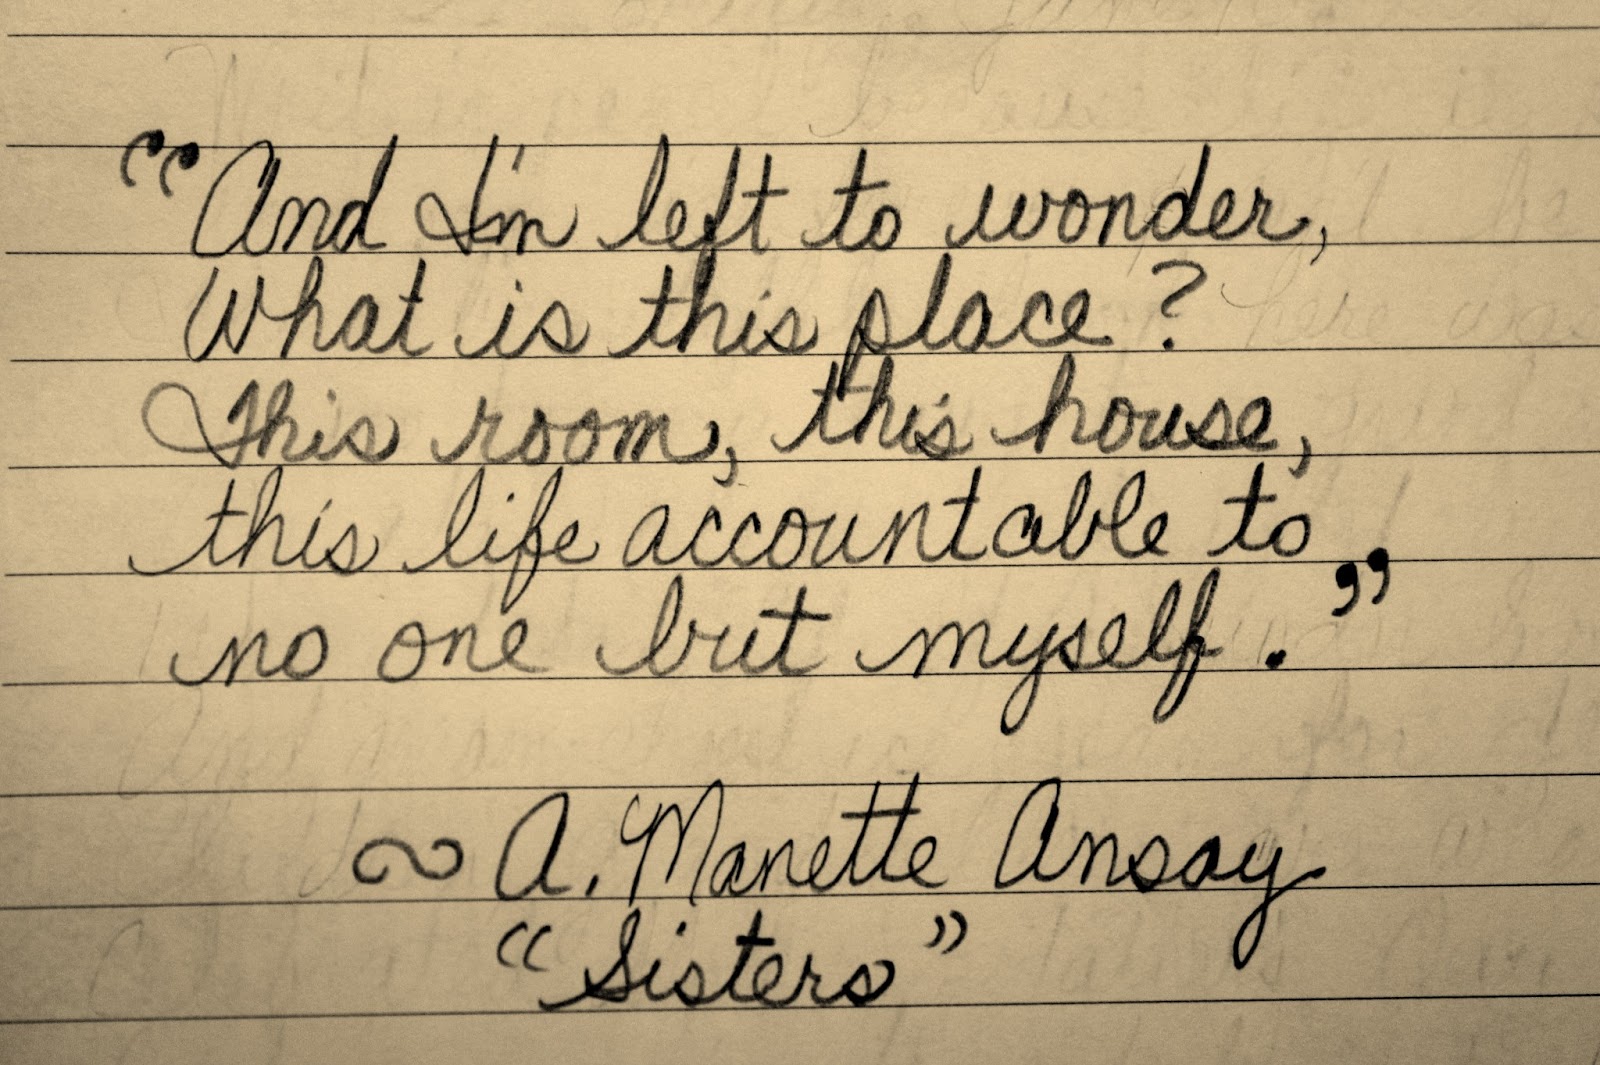 “And I'm left to wonder,
What is this place?
This room, this house,
this life accountable to
no one but myself.”
~ A. Manette Ansay
“Sisters”